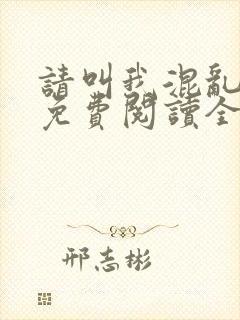 請叫我混亂
免費閱讀全
邢志彬